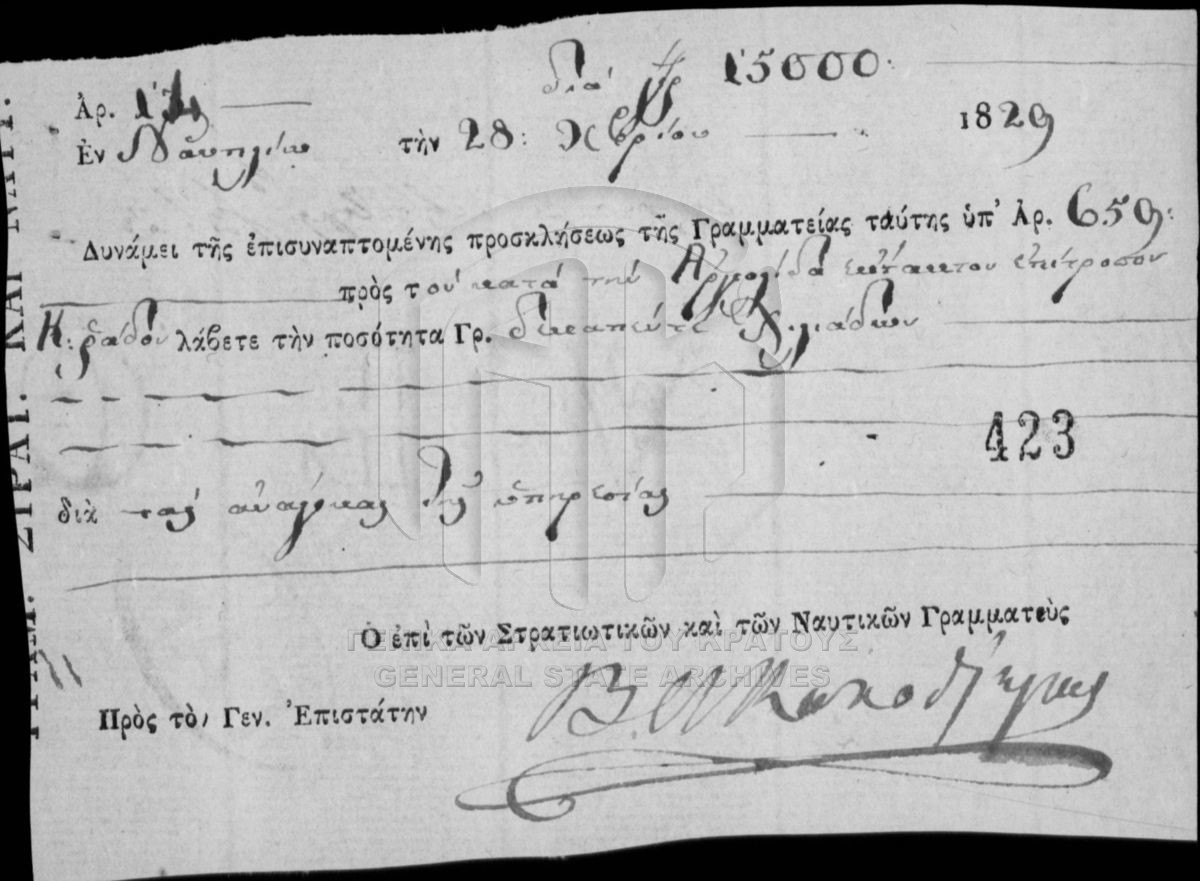 διὰ γρ 15000.
Ἀρ.
Ἐν Ναυπλίῳ τὴν 28: Χβρίου 1829
Δυνάμει τῆς ἐπισυναπτομένης προσκλήσεως τῆς Γραμματείας ταύτης ὑπ' Ἀρ. 659:
πρὸς τον κατά την Ἀργολίδα ἔκτακτον ἐπίτροπον
λάβετε τὴν ποσότητα Γρ. δεκαπέντε χιλιάδων
423
διὰ τας ἀνάγκας της ὑπηρεσίας
Ὁ ἐπὶ τῶν Στρατιωτικῶν καὶ τῶν Ναυτικῶν Γραμματεὺς
ΓΕΝΙΚΑ ΑΡΧΕΙΑ ΤΟΥ ΚΡΑΤΟΥΣ
GENERAL STATE ARCHIVES
Πρὸς τὸν Γεν. Ἐπιστάτην
ΓΡΑΜ. ΣΤΡΑΤ. ΚΑΙ ΝΑΥΤ.